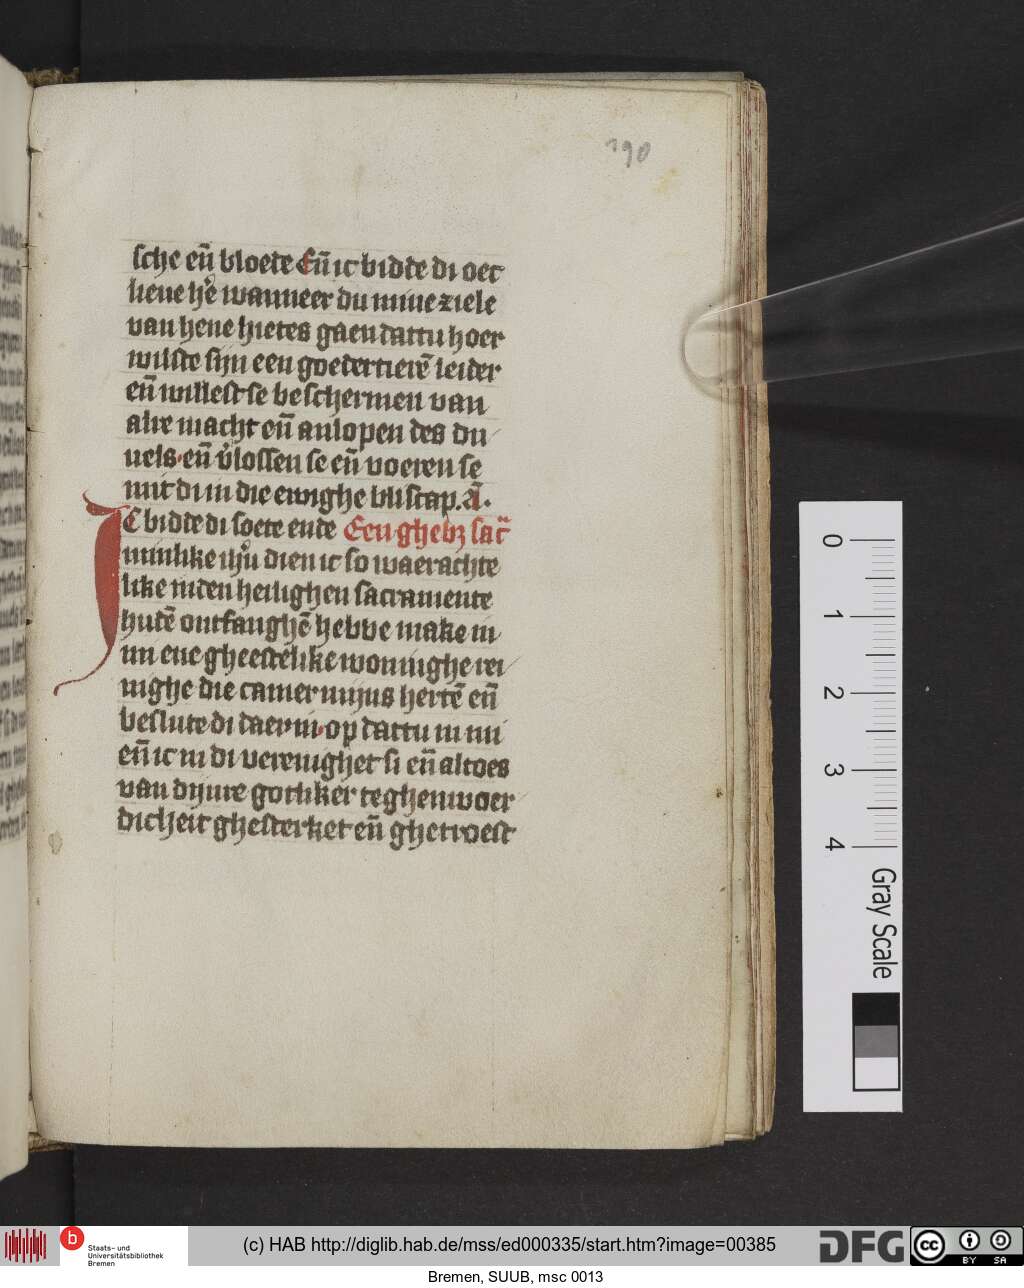 190
sche en̄ bloete En̄ ic bidde di oec
lieue h̄e wanneer du mine ziele
van hene hietes gaen dattu hoer
wilste sijn een goedertierē leider
en̄ willest se beschermen van
alre macht en̄ anlopen des du
uels·en̄ v̄lossen se en̄ voeren se
mit di in die ewighe bliscap. Ā·
IC bidde di soete ende Een ghebꝫ sac̄
minlike ihū dien ic so waerachte
like inden heilighen sacramente
hudē ontfanghē hebbe make in
mi ene gheestelike woninghe rei
nighe die camer mijns hertē en̄
beslute di daer in·op dattu in mi
en̄ ic in di verenighet si en̄ altoes
van dijnre gotliker teghenwoer
dicheit ghesterket en̄ ghetroest
0
1
2
3
4
Gray Scale
b
Staats- und
Universitätsbibliothek
Bremen
(c) HAB http://diglib.hab.de/mss/ed000335/start.htm?image=00385
DFG
cc
BY SA
Bremen, SUUB, msc 0013